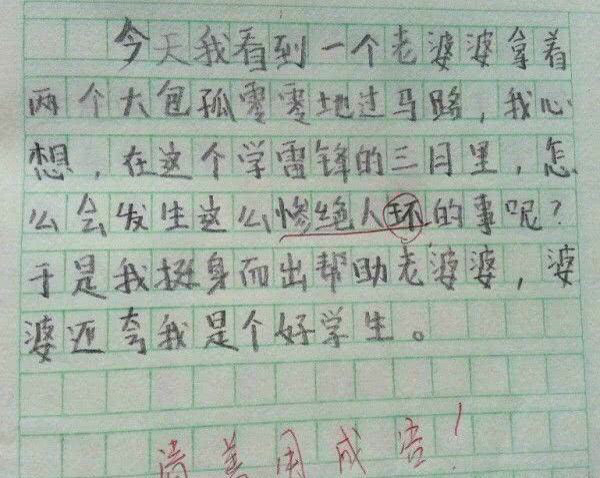 今天我看到一个老婆婆拿着
两个大包孤零零地过马路，我心
想，在这个学雷锋的三月里，怎
么会发生这么惨绝人环的事呢？
于是我挺身而出帮助老婆婆，婆
婆还夸我是个好学生。
请善用成！